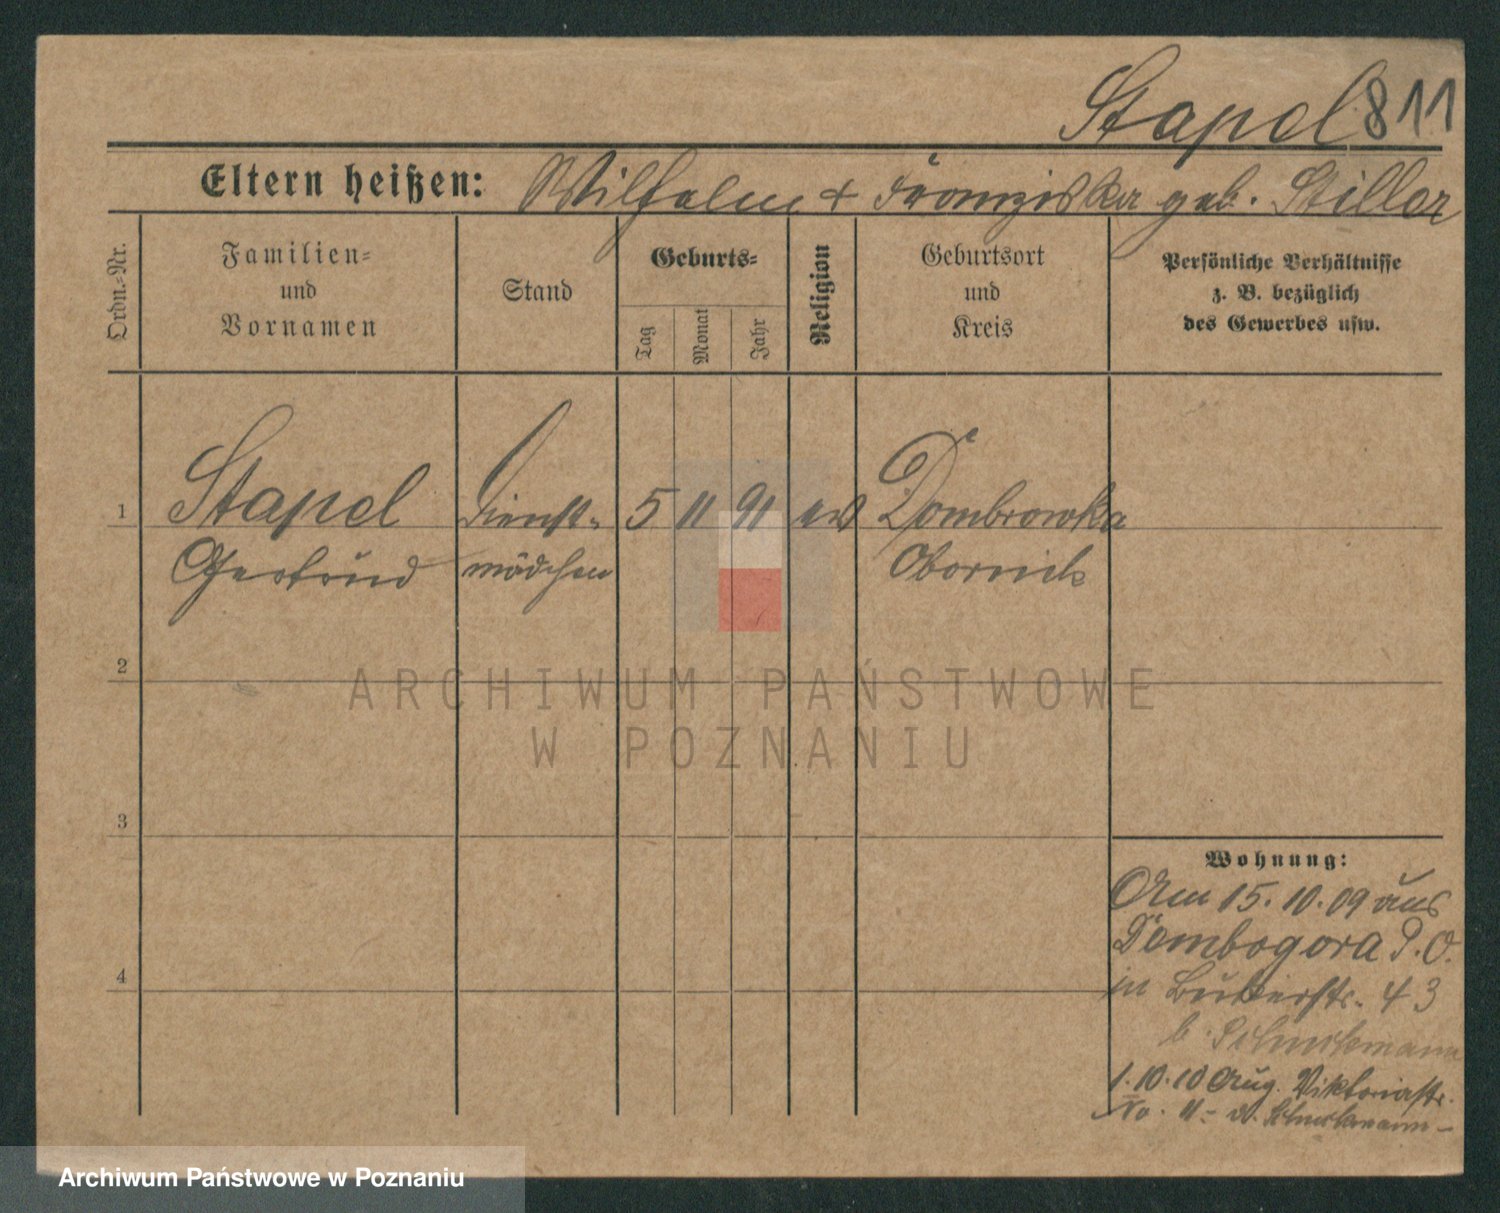 Stapel 811
Eltern heißen: Wilhelm + Franziska geb. Stiller
Ordn.-Nr.
Familien-
und
Vornamen
Stand
Geburts-
Tag
Monat
Jahr
Religion
Geburtsort
und
Kreis
Persönliche Verhältnisse
z. B. bezüglich
des Gewerbes usw.
1 Stapel Dienst- 5 11 91 ev Dombrowka
Gertrud mädchen Obornick
2
3
4
Wohnung:
Am 15.10.09 aus
Dombogora P.O.
in 43
b.
1.10.10 Aug. Viktoriastr.
No. 11
ARCHIWUM PAŃSTWOWE
W POZNANIU
Archiwum Państwowe w Poznaniu